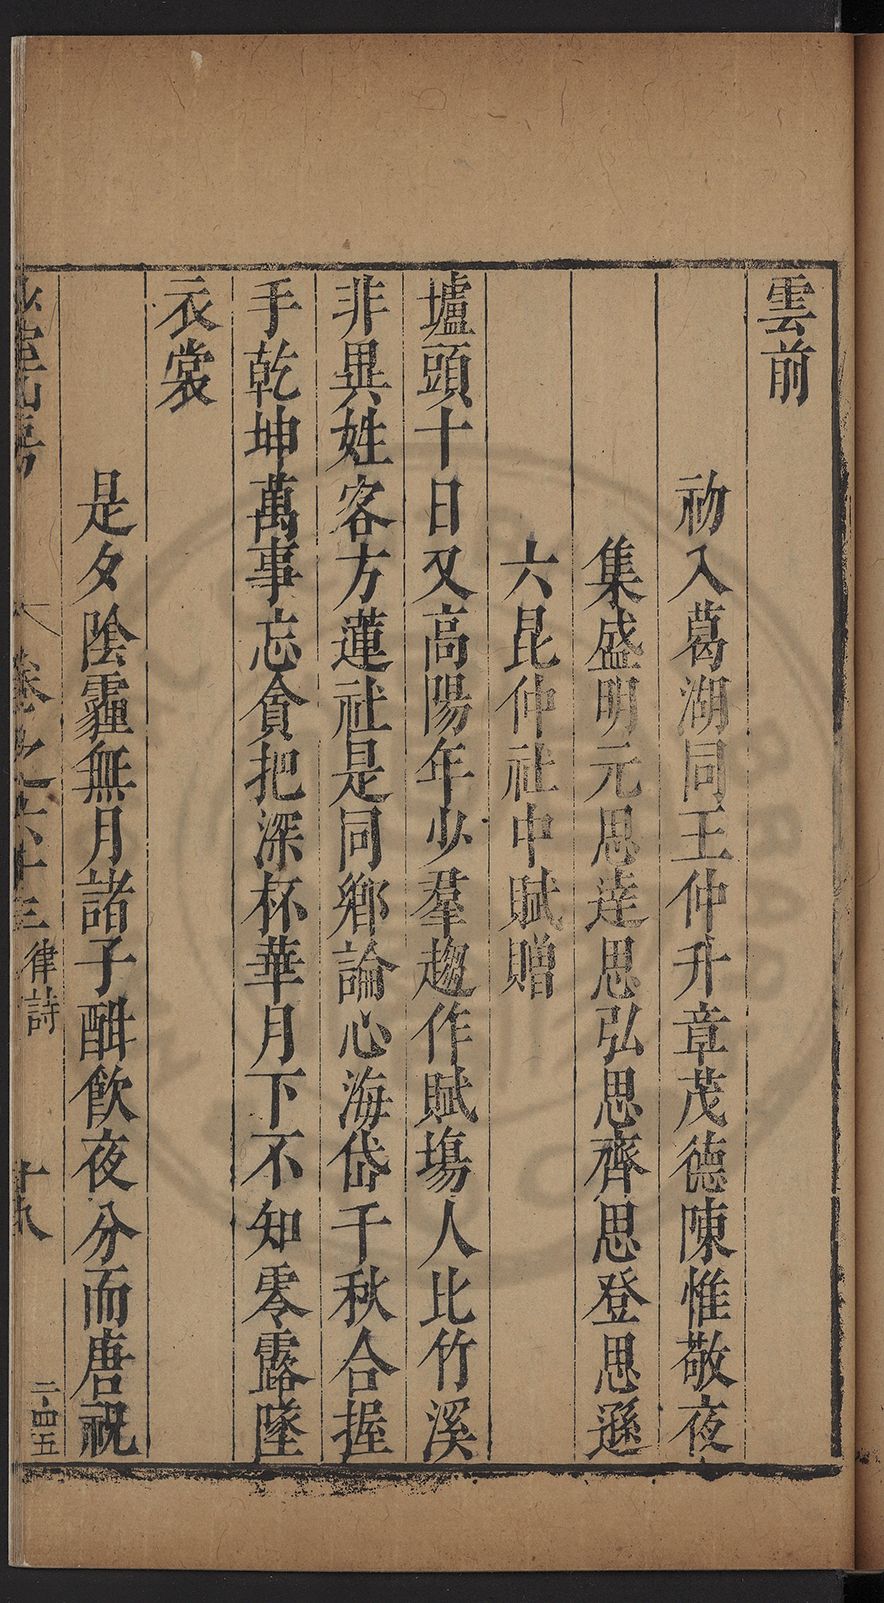 雲前
初入葛湖同王仲升章茂德陳惟敬夜
集盛明元思達思弘思齊思登思遜
六昆仲社中賦贈
壚頭十日又高陽年少羣趨作賦塲人比竹溪
非異姓客方蓮社是同鄉論心海岱千秋合握
手乾坤萬事忘貪把深杯華月下不知零露墜
衣裳
是夕陰霾無月諸子酣飲夜分而唐祝
卷之六十三
律詩
十八
二四五